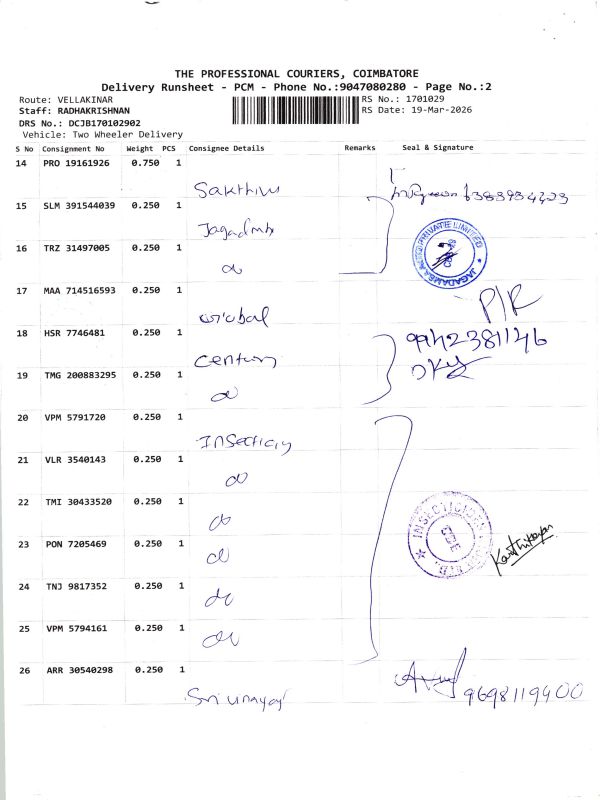 THE PROFESSIONAL COURIERS, COIMBATORE
Delivery Runsheet - PCM - Phone No.:9047080280 - Page No.:2
Route: VELLAKINAR
RS No.: 1701029
Staff: RADHAKRISHNAN
RS Date: 19-Mar-2026
DRS No.: DCJB170102902
Vehicle: Two Wheeler Delivery
S No Consignment No Weight PCS Consignee Details Remarks Seal & Signature
14 PRO 19161926 0.750 1
Sakthivu
15 SLM 391544039 0.250 1
Jagadmb
16 TRZ 31497005 0.250 1
JAGADAMBA AUTO PRIVATE LIMITED
17 MAA 714516593 0.250 1
P/R
18 HSR 7746481 0.250 1
9942381146
Century
19 TMG 200883295 0.250 1
20 VPM 5791720 0.250 1
21 VLR 3540143 0.250 1
22 TMI 30433520 0.250 1
do
23 PON 7205469 0.250 1
Karthikeyan
24 TNJ 9817352 0.250 1
do
25 VPM 5794161 0.250 1
26 ARR 30540298 0.250 1
9698119400